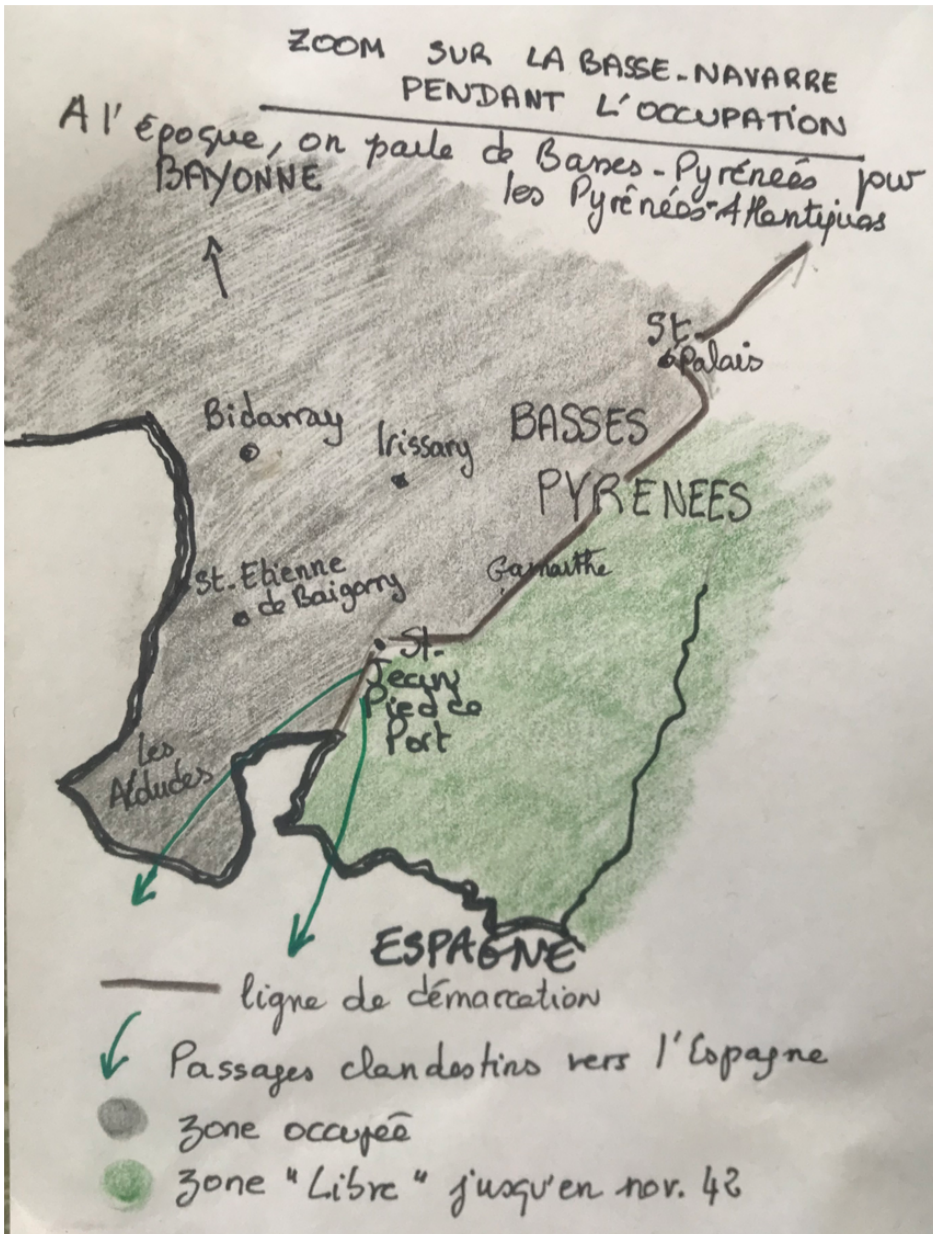 ZOOM SUR LA BASSE-NAVARRE
PENDANT L'OCCUPATION
A l'époque, on parle de Basses-Pyrénées pour
les Pyrénées-Atlantiques
BAYONNE
St.
Palais
Bidarray
Irissary
BASSES
PYRENEES
Gamarthe
St. Etienne
de Baigorry
St.
Jean
Pied de
Port
Les
Aldudes
ESPAGNE
ligne de démarcation
Passages clandestins vers l'Espagne
zone occupée
zone "Libre" jusqu'en nov. 42